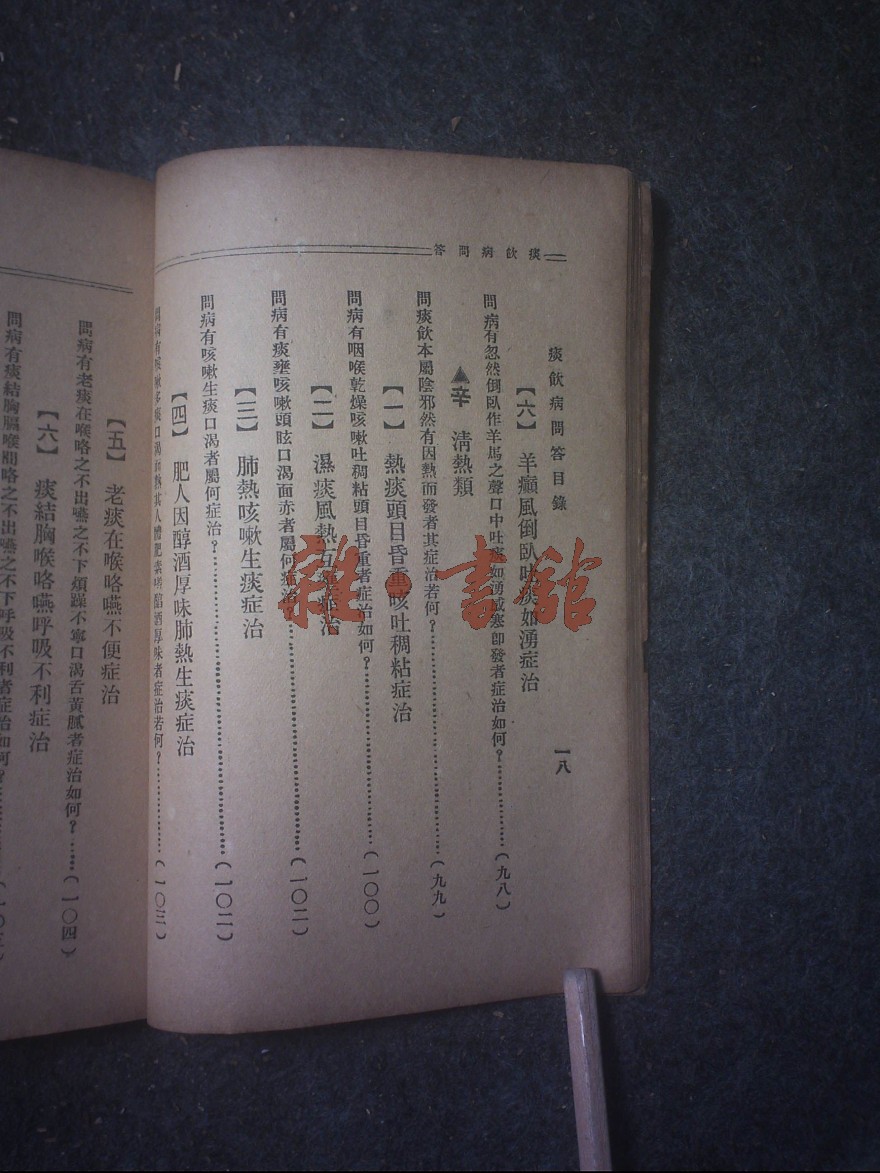 痰飲病問答
痰飲病問答目錄
一八
【六】 羊癲風倒臥吐痰如湧症治
問病有忽然倒臥作羊馬之聲口中吐痰如湧感寒卽發者症治如何？（九八）
▲辛 淸熱類
問痰飲本屬陰邪然有因熱而發者其症治若何？（九九）
【一】 熱痰頭目昏重咳吐稠粘症治
問病有咽喉乾燥咳嗽吐稠粘頭目昏重者症治如何？（一〇〇）
【二】 濕痰風熱互症治
問病有痰壅咳嗽頭眩口渴面赤者屬何症治？（一〇二）
【三】 肺熱咳嗽生痰症治
問病有咳嗽生痰口渴者屬何症治？（一〇二）
【四】 肥人因醇酒厚味肺熱生痰症治
問病有咳嗽多痰口渴面熱其人體肥素嗜醇酒厚味者症治若何？（一〇三）
【五】 老痰在喉咯嚥不便症治
問病有老痰在喉咯之不出嚥之不下煩躁不寧口渴舌黃膩者症治如何？（一〇四）
【六】 痰結胸喉咯嚥呼吸不利症治
問病有痰結胸膈喉間咯之不出嚥之不下呼吸不利者症治如何？
雜·書館